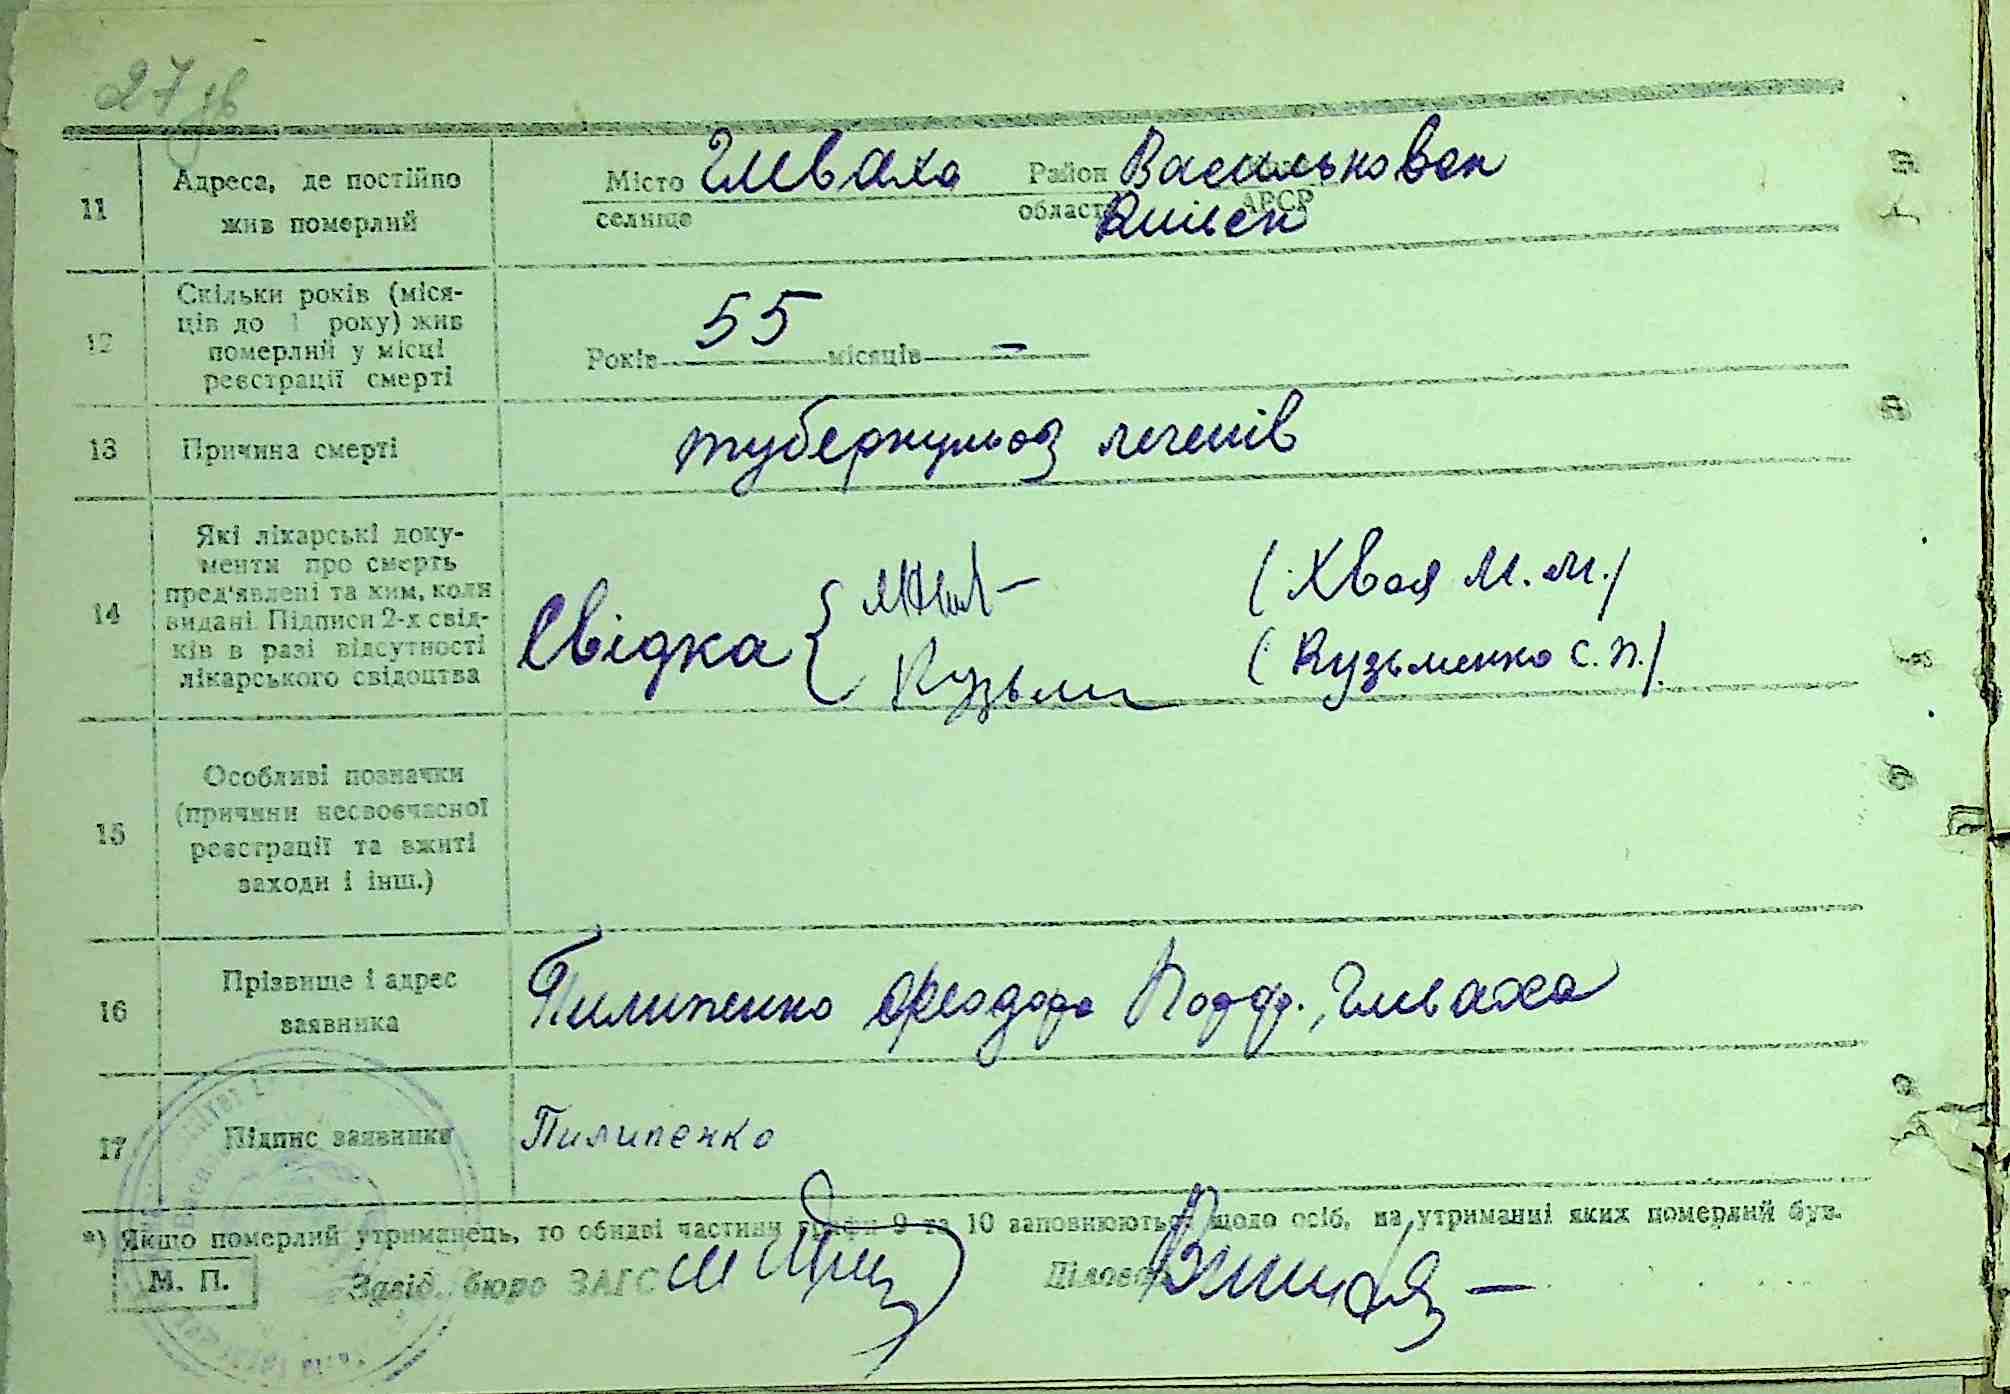 27 зв
11
Адреса, де постійно
жив померлий
Місто Гливаха Район Васильковск
селище області АРСР Київск
12
Скільки років (міся-
ців до 1 року) жив
померлий у місці
реєстрації смерті
Років 55 місяців —
13
Причина смерті
туберкульоз легенів
14
Які лікарські доку-
менти про смерть
пред'явлені та ким, коли
видані. Підписи 2-х свід-
ків в разі відсутності
лікарського свідоцтва
Свідка {
(Хвоя М. М.)
Кузьм
(Кузьменко С. П.)
15
Особливі позначки
(причини несвоєчасної
реєстрації та вжиті
заходи і інш.)
16
Прізвище і адрес
заявника
Пилипенко Феодора , Гливаха
17
Підпис заявника
Пилипенко
*) Якщо померлий утриманець, то обидві частини графи 9 та 10 заповнюються щодо осіб, на утриманні яких померлий був.
М. П.
Завід. бюро ЗАГС
Діловод